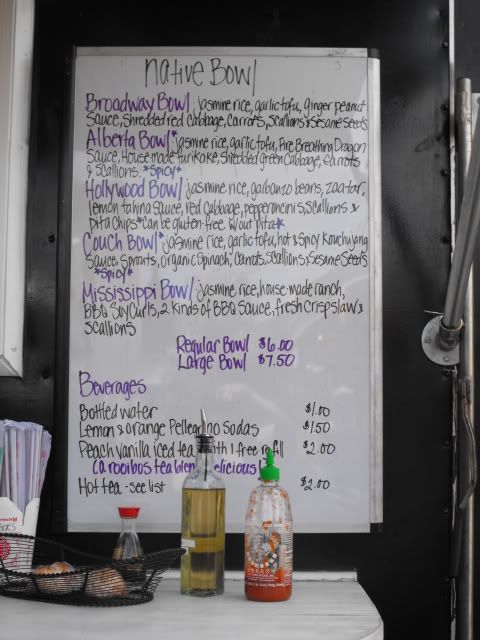 Native Bowl
Broadway Bowl jasmine rice, garlic tofu, ginger peanut
Sauce, Shredded red Cabbage, Carrots, Scallions & Sesame Seeds
Alberta Bowl* jasmine rice, garlic tofu, Fire Breathing Dragon
Sauce, House made furikake, Shredded green Cabbage, Carrots
& Scallions. *Spicy*
Hollywood Bowl jasmine rice, garbanzo beans, zaatar,
lemon tahina sauce, red Cabbage, pepperoncinis, Scallions &
Pita Chips *can be gluten-free w/out pita*
Couch Bowl* jasmine rice, garlic tofu, hot & Spicy Kouchujang
Sauce, Sprouts, organic Spinach, Carrots, Scallions, Sesame Seeds
*Spicy*
Mississippi Bowl jasmine rice, house-made ranch,
BBQ Soy Curls, 2 kinds of BBQ Sauce, fresh crisp slaw &
Scallions
Regular Bowl $6.00
Large Bowl $7.50
Beverages
Bottled water $1.00
Lemon & orange Pellegrino Sodas $1.50
Peach vanilla iced tea with 1 free refill $2.00
(a rooibos tea blend delicious
Hot tea - see list $2.00